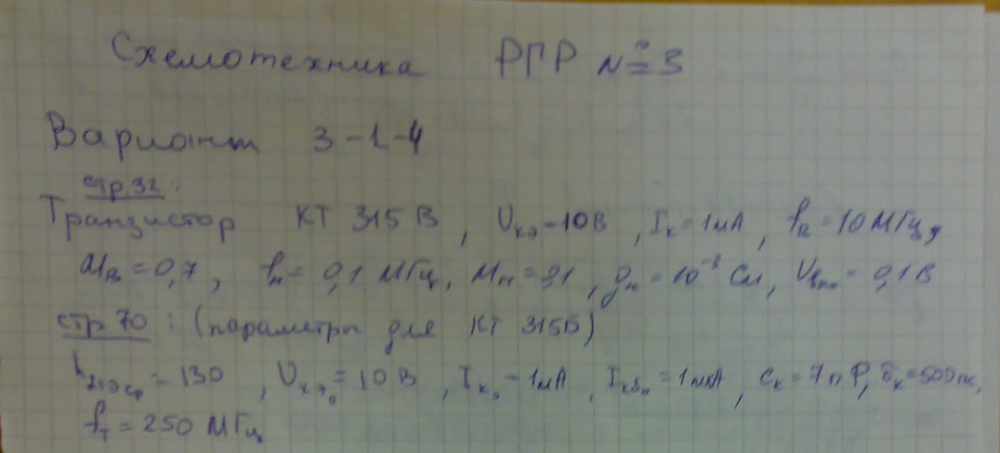 Схемотехника РГР №3
Вариант 3-1-4
стр.32:
Транзистор КТ 315 В, Uкэ-10В, Iк=1мА, fв=10МГц,
Мв=0,7, fн=0,1 МГц, Мн=0,1, gн=10⁻³ См, Uвых=0,1В
стр 70: (параметры для КТ 315Б)
h21эср=130, Uкэ₀=10В, Iк₀-1мА, Iкб₀=1мкА, Cк=7пФ, τк=500пс,
fт=250 МГц